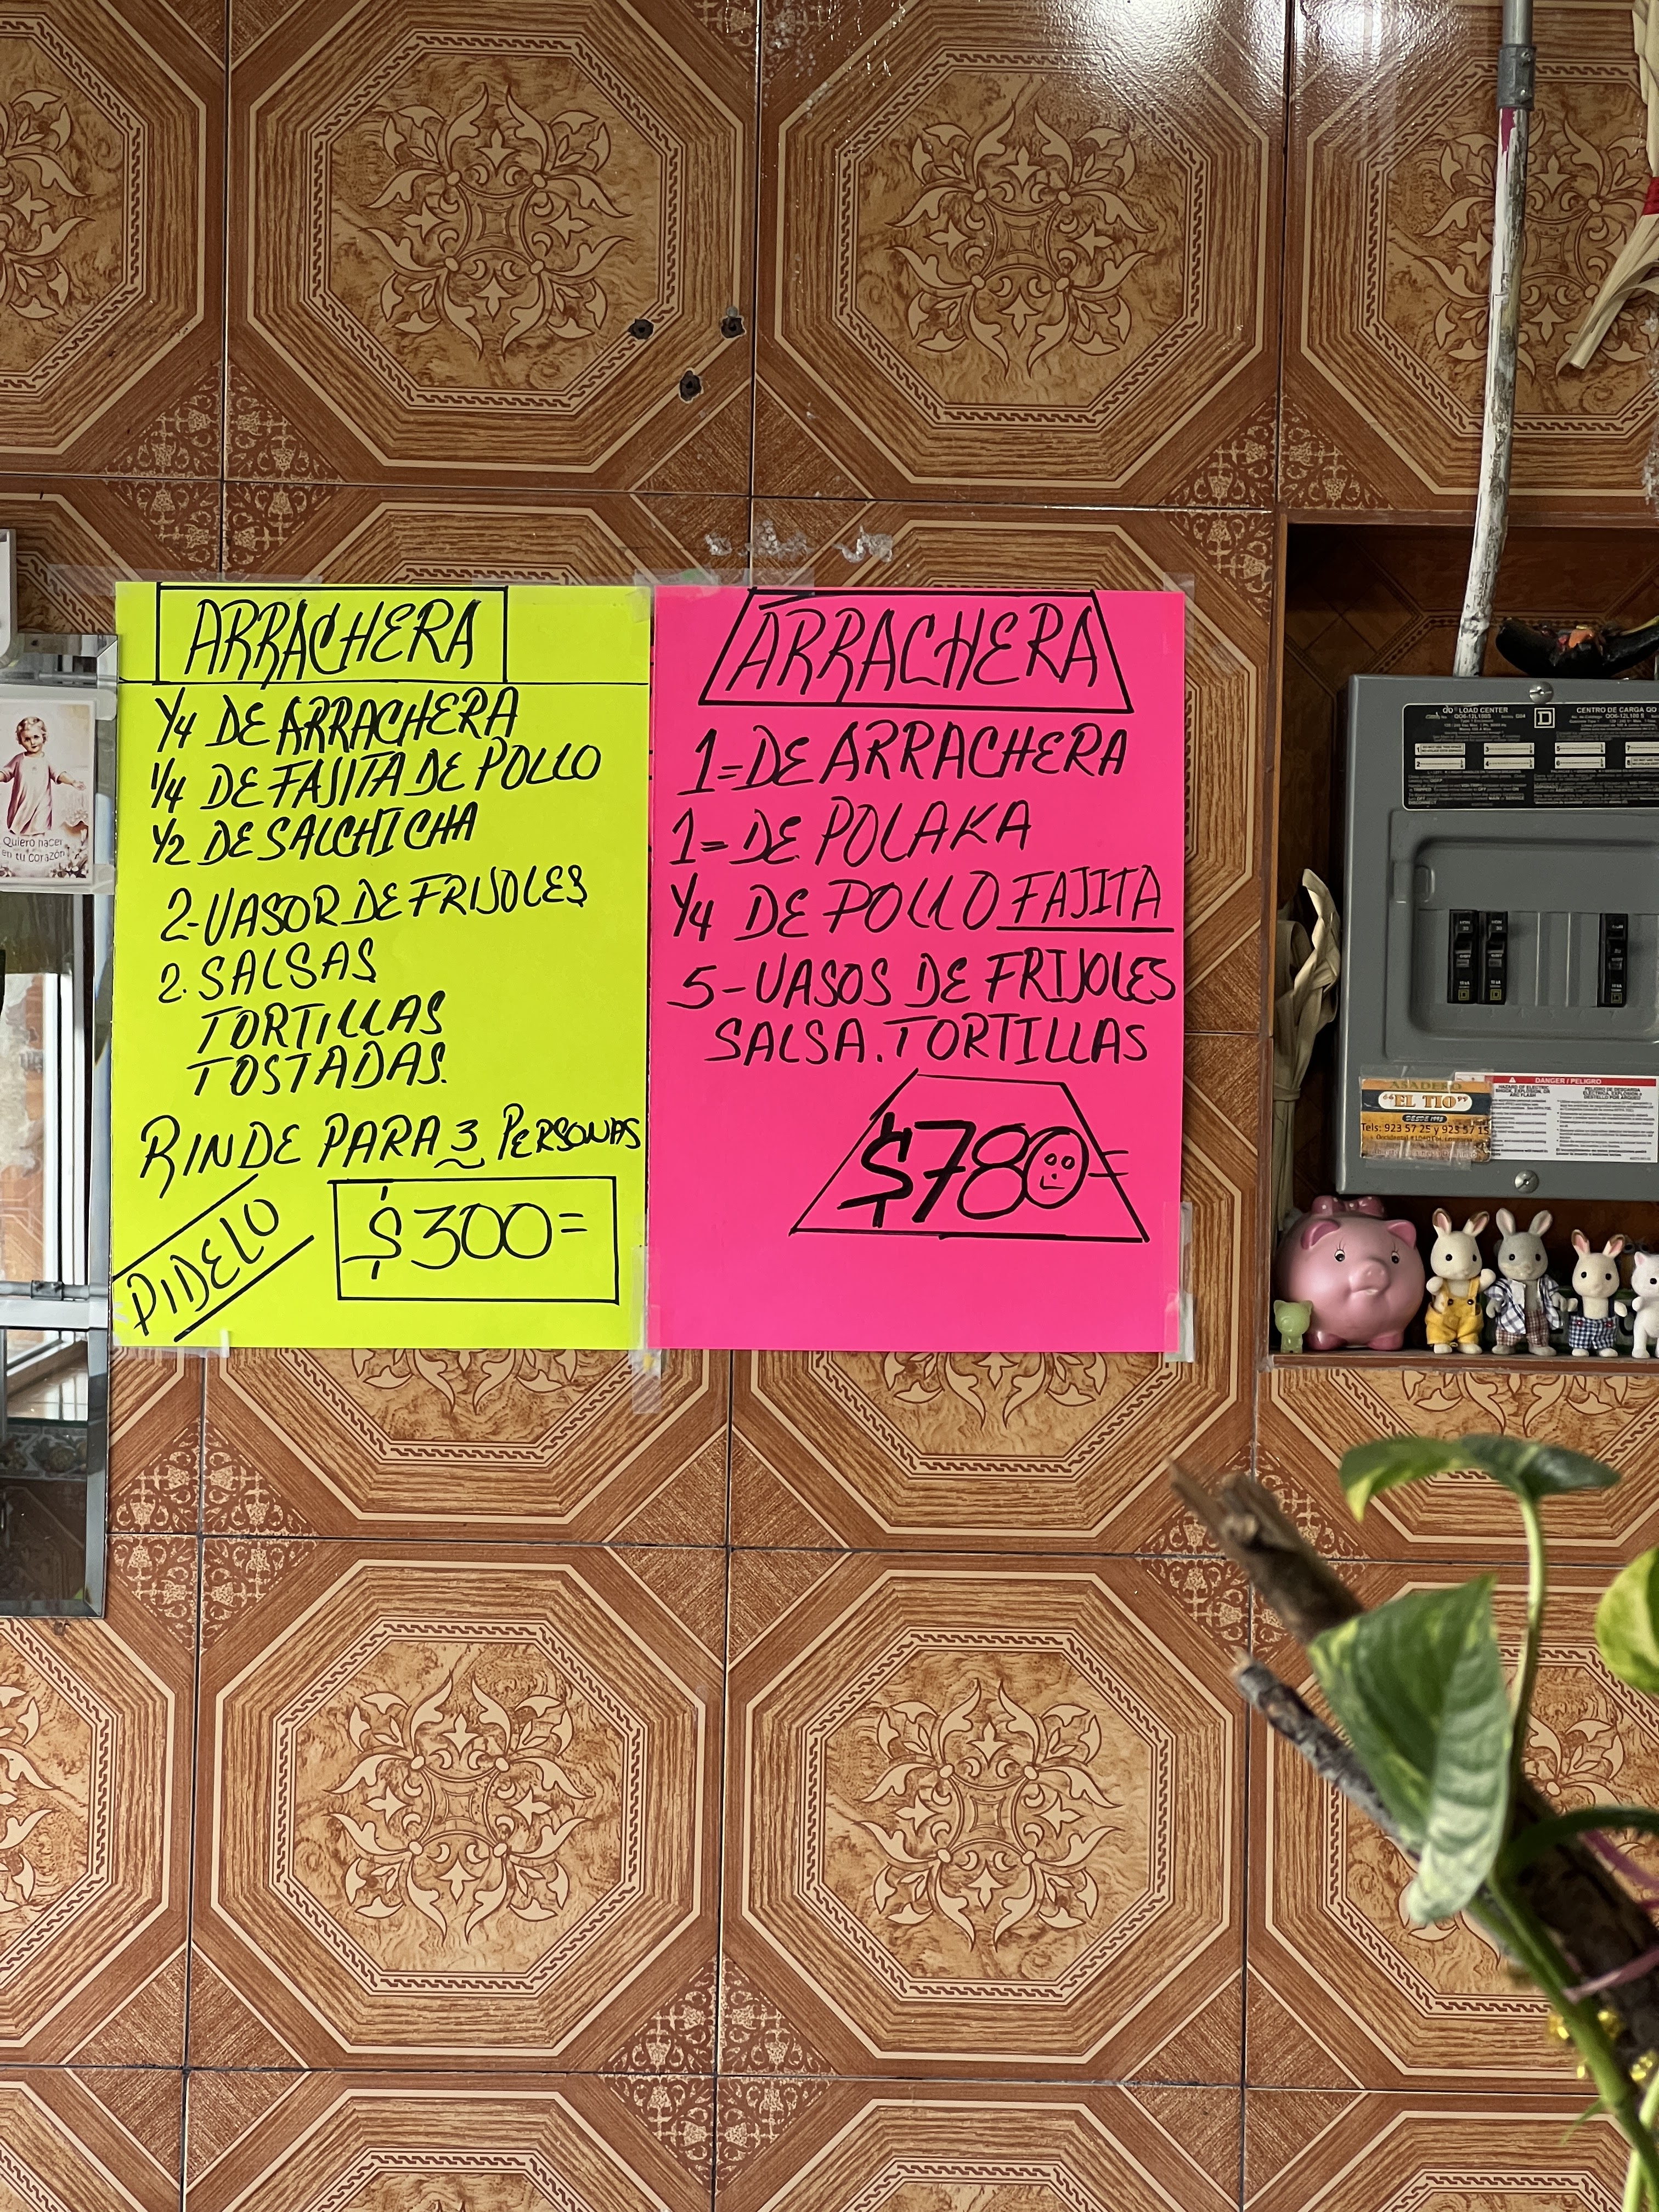 ARRACHERA
1/4 DE ARRACHERA
1/4 DE FAJITA DE POLLO
1/2 DE SALCHICHA
2-VASOR DE FRIJOLES
2. SALSAS
TORTILLAS
TOSTADAS.
RINDE PARA 3 PERSONAS
PIDELO
$300=
ARRACHERA
1=DE ARRACHERA
1=DE POLAKA
1/4 DE POLLO FAJITA
5-VASOS DE FRIJOLES
SALSA.TORTILLAS
$780=
Quiero nacer
en tu corazón
QO LOAD CENTER
CENTRO DE CARGA QO
ASADERO
"EL TIO"
DESDE 1993
Tels: 923 57 25 y 923 57 15
DANGER / PELIGRO
HAZARD OF ELECTRIC